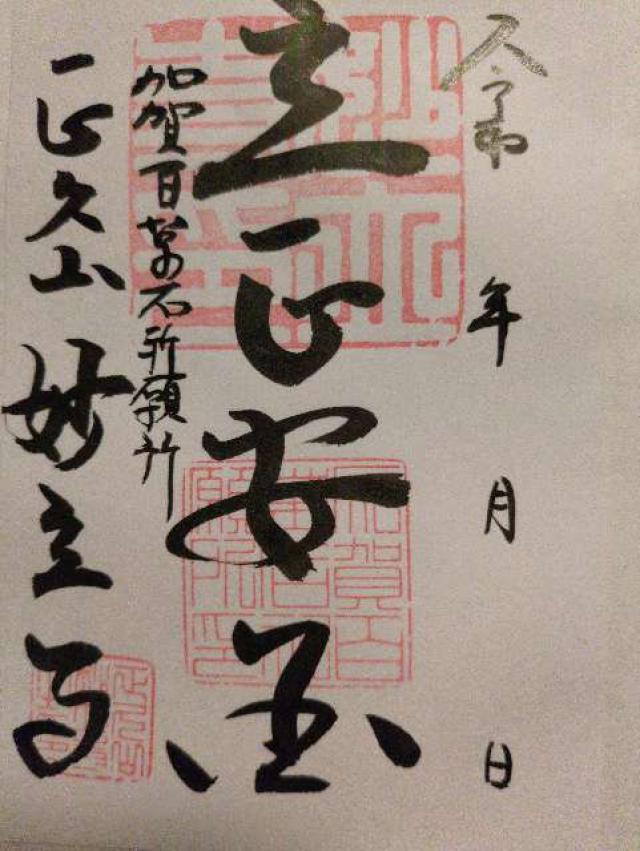 令和 年 月 日
立正安国
加賀百萬石祈願所
正久山 妙立寺
加賀百
萬石祈
願所印